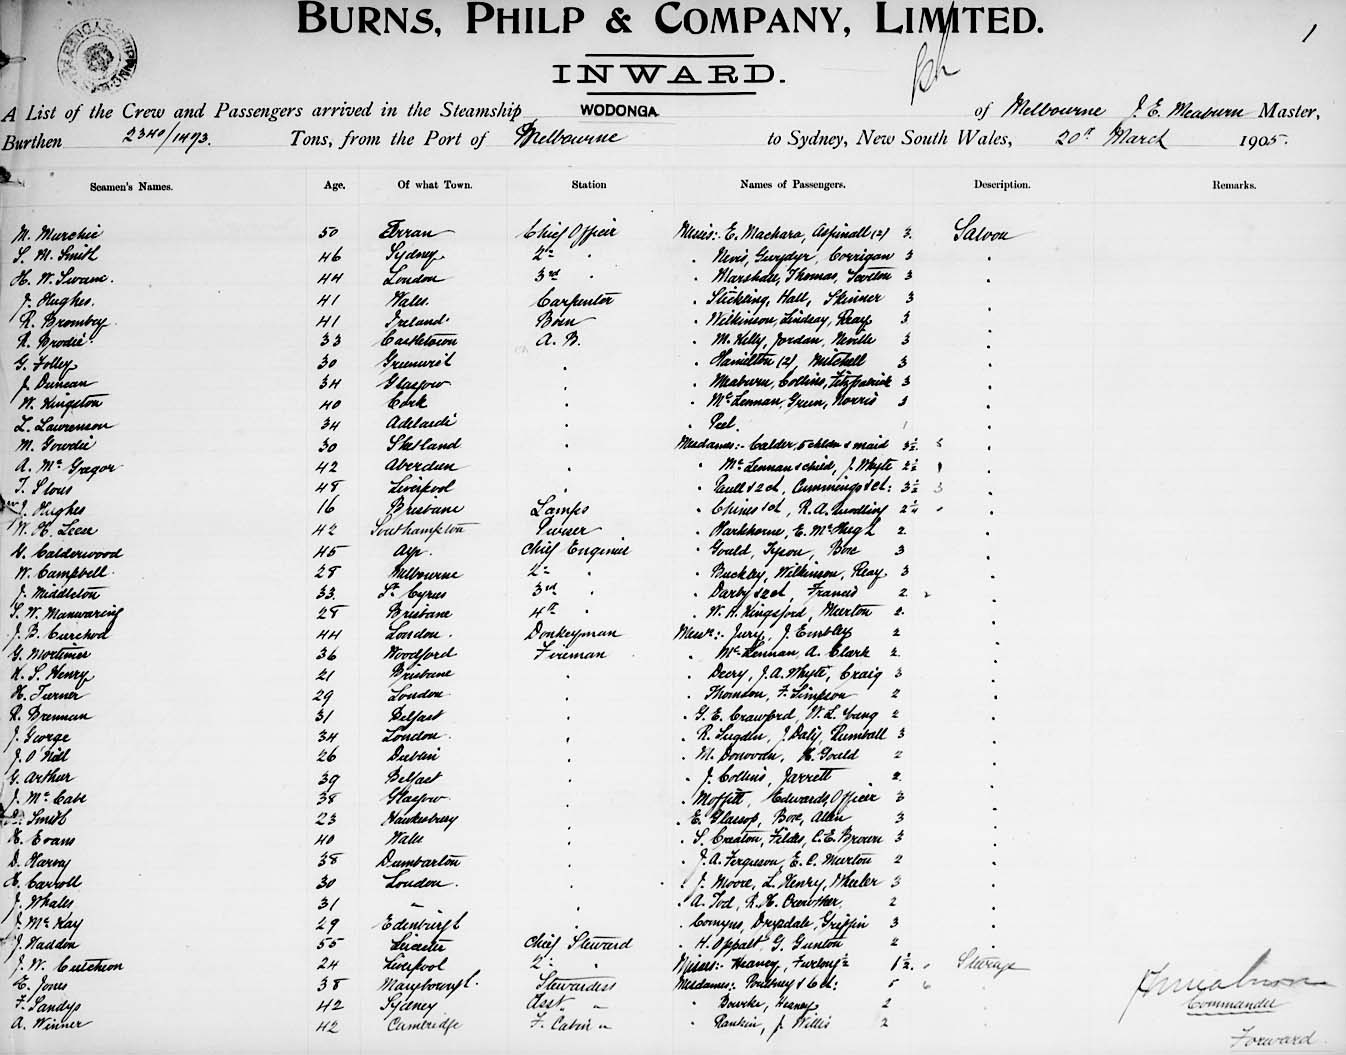 BURNS, PHILP & COMPANY, LIMITED.
1
INWARD.
A List of the Crew and Passengers arrived in the Steamship WODONGA of Melbourne J. E. Meaburn Master,
Burthen 2340/1473. Tons, from the Port of Melbourne to Sydney, New South Wales, 20th March 1905.
Seamen's Names. Age. Of what Town. Station Names of Passengers. Description. Remarks.
M. Murchie 50 Chief Officer Misses: E. Machara, Aspinall (2) 3 Saloon
S. M. Smith 46 Sydney 2nd " " Nevis, Gwydyr, Corrigan 3 "
H. W. Swane. 44 London 3rd " Marshall, Thomas, 3 "
J. Hughes. 41 Wales. Carpenter " Stickling, Hall, Skinner 3 "
R. Brombey. 41 Ireland. " Wilkinson, Lindsay, Reay 3 "
R. Brodie. 33 Castletown A. B. " M. Kelly, Jordan, Neville 3 "
G. Folley 30 " " Hamilton (2), Mitchell 3 "
J. Duncan 34 Glasgow " " Meaburn, Collins, Fitzpatrick 3 "
W. Kingston 40 Cork " " McLennan, Green, Norris 3 "
L. Lawrenson 34 Adelaide " " Peel. 1 "
M. Gowdie 30 Shetland " Mesdames:- Calder, 5 chldn & maid 3½ "
A. McGregor 42 Aberdeen " " McLennan & child, J. Whyte 2½ "
T. Stous 48 Liverpool " " Paull & 2 ch, Cummings & ch: 3½ "
J. Hughes 16 Brisbane Lamps " 1 ch, R. A. "
W. H. Leese 42 Southampton Purser " Harkhorne, E. McHugh 2 "
Calderwood 45 Ayr. Chief Engineer " Gould, Tyson, Boxe 3 "
W. Campbell. 28 Melbourne 2nd " " Buckley, Wilkinson, Reay 3 "
J. Middleton 33. St. Cyrus 3rd " " Darby & 2 ch, Francis 2 "
S. W. Manwaring 28 Brisbane 4th " " W. H. Kingsford, Murton 2 "
J. B. Curchod 44 London. Donkeyman Messrs:- Jury, J. Embley 2 "
G. Mortimer 36 Woodford Fireman " McLennan, A. Clark 2 "
S. Henry 21 Brisbane " " Deery, J. A. Whyte, Craig 3 "
H. Turner 29 London " " Thomson, F. Simpson 2 "
R. Brennan 31 Belfast " " G. E. Crawford, W. L. Young 2 "
J. George 34 London. " " R. Sugden, J. Daly, Rumball 3 "
J. O'Neill 26 Dublin " " M. Donovan, H. Gould 2 "
G. Arthur 39 Belfast " " J. Collins, Jarrett 2 "
J. McCabe 38 Glasgow " " Moffitt, Edwards, Officer 3 "
Smith 23 Hawkesbury " " E. Glassop, Boxe, Allen 3 "
Evans 40 Wales " " S. Creaton, Fildes, C. E. Brown 3 "
D. Harvey 38 Dumbarton " " J. A. Ferguson, E. C. Murton 2 "
Carroll 30 London. " " J. Moore, L. Henry, Wheeler 3 "
J. Whales 31 " " " A. Tod, R. H. Crowther. 2 "
J. McKay 29 Edinburgh " " Comyns, Drysdale, Griffin 3 "
J. Haddon 55 Leicester Chief Steward " H. Oppalt, G. Gunton 2 "
J. W. Cutcheon 24 Liverpool 2nd " Misses:- Heaney, Furlong½ 1½. Steerage
E. Jones 38 Maryborough. Stewardess Mesdames:- & 6 ch: 5
F. Sandys 42 Sydney Asst " " Bourke, Heaney 2 "
A. Winner 42 Cambridge F. Cabin " " Rankin, J. Willis 2 "
Commander
Forward